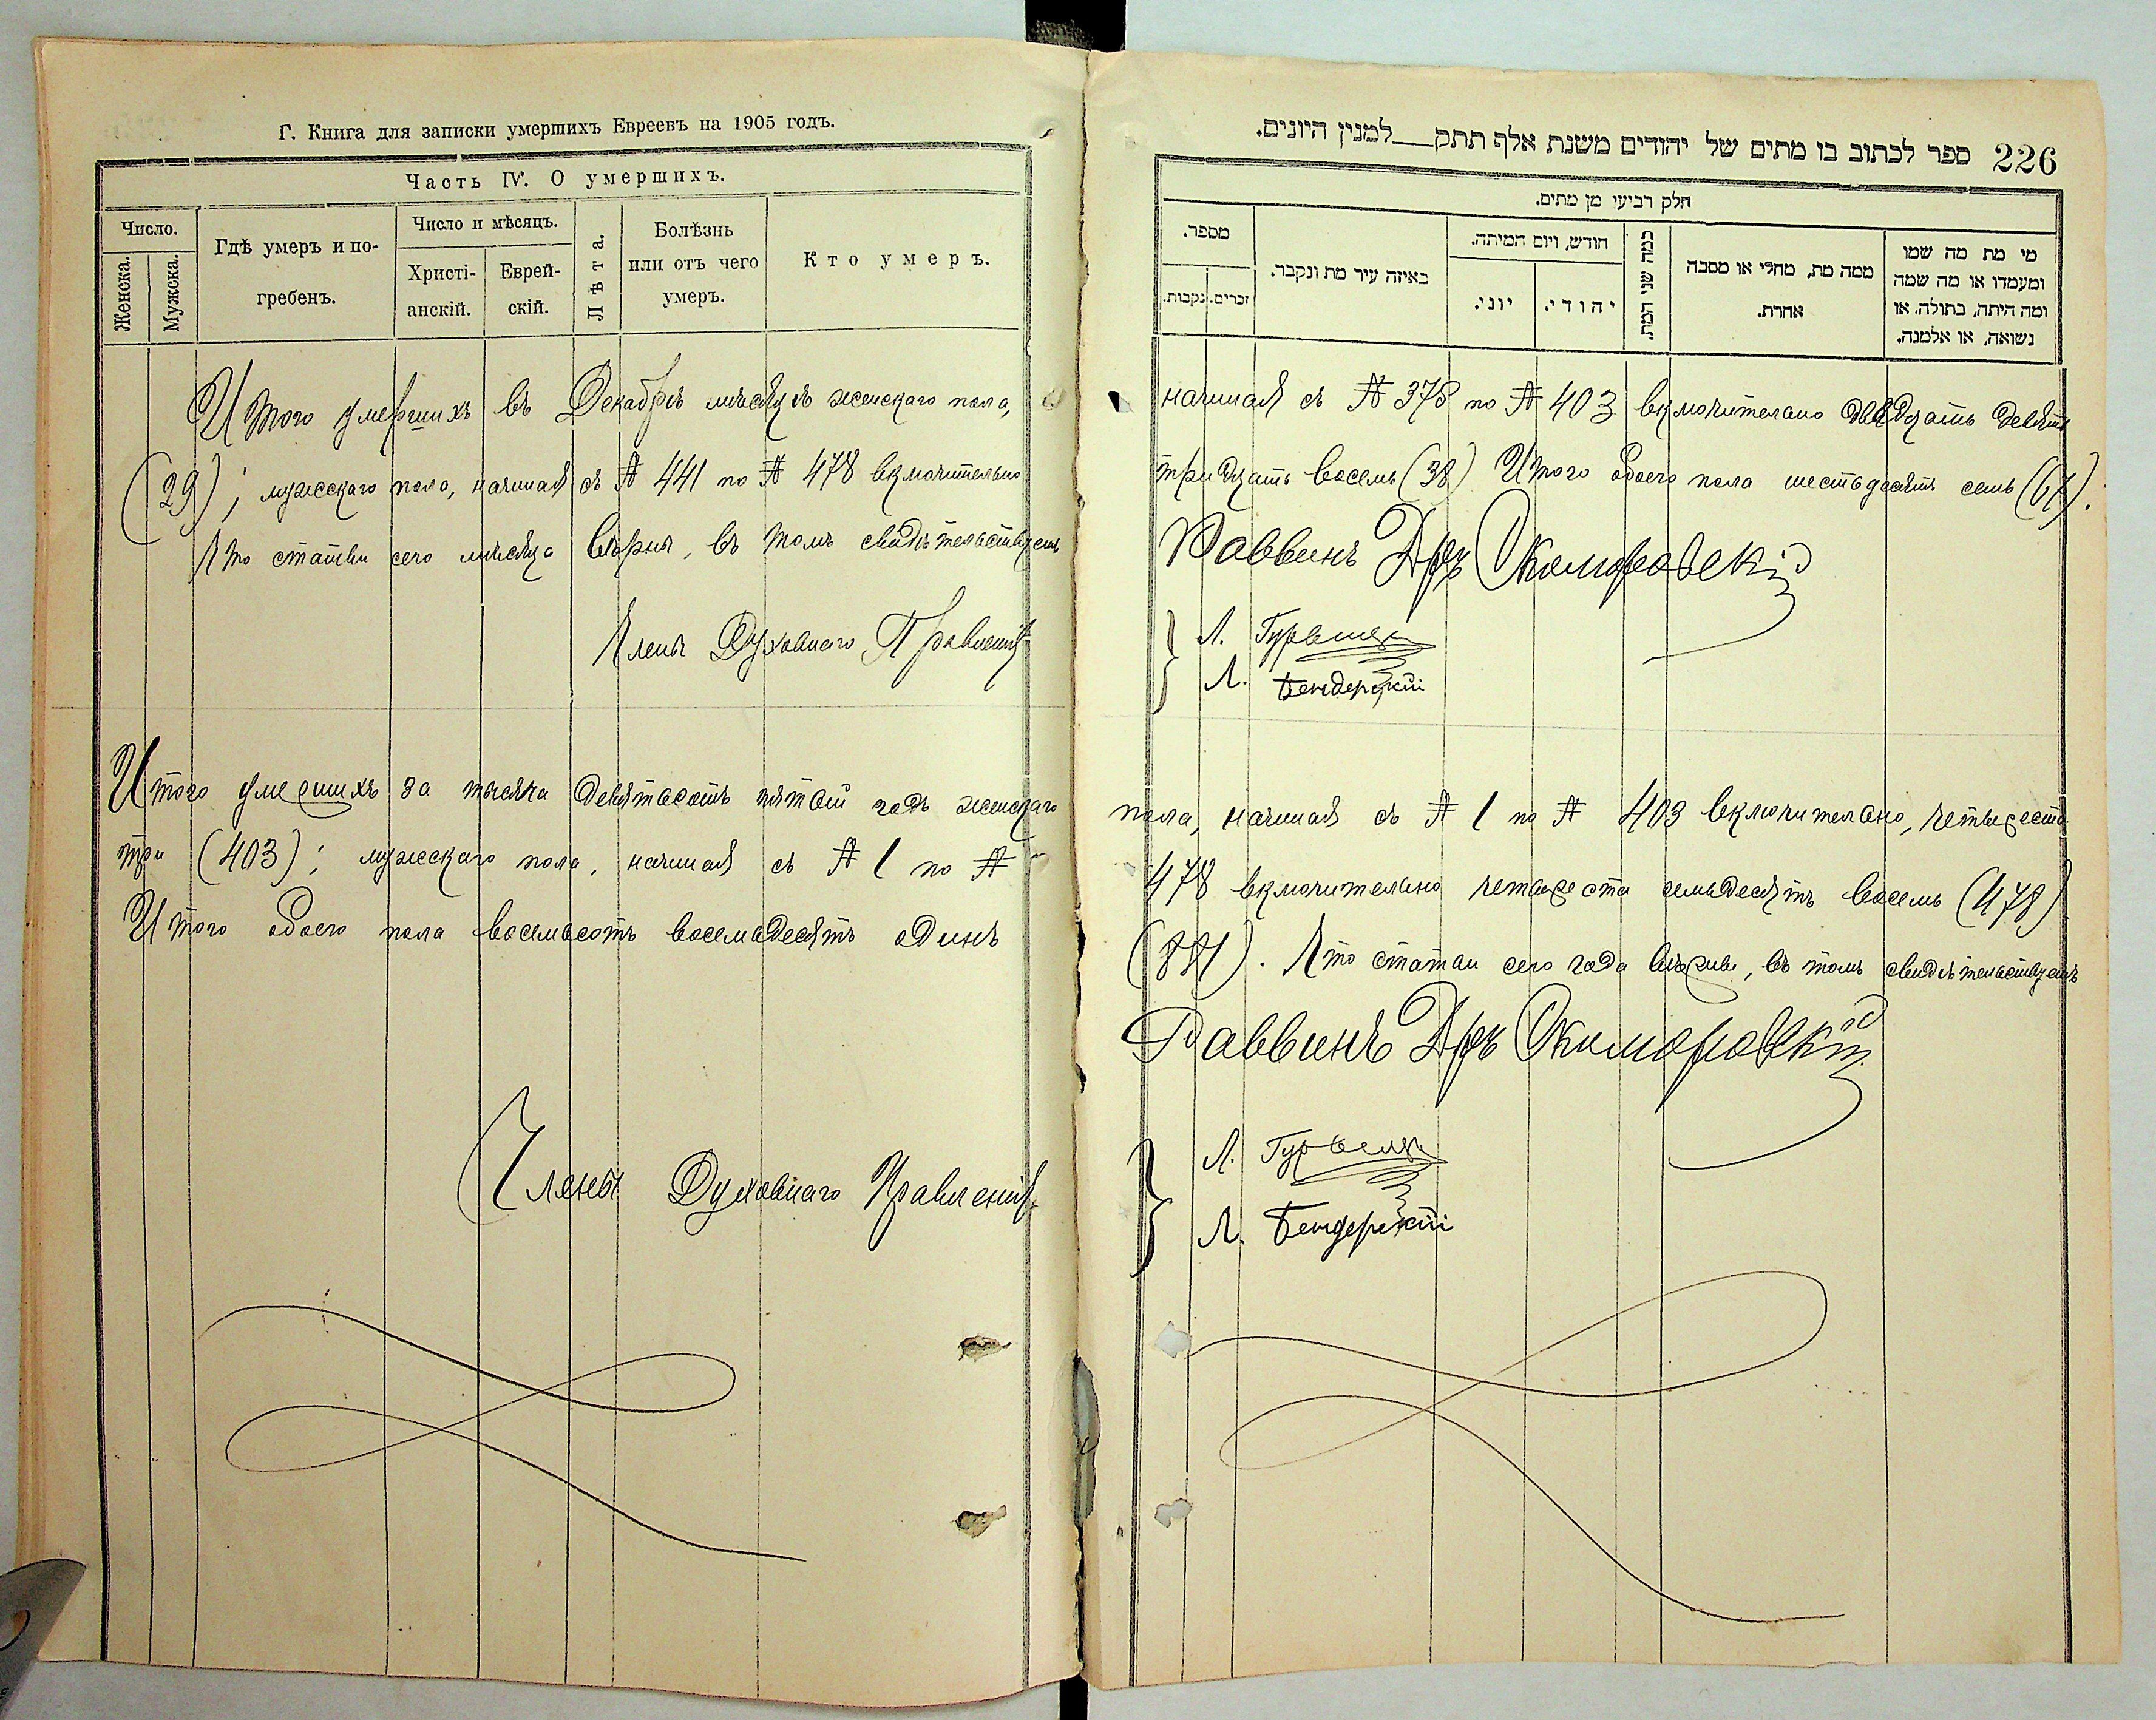 Г. Книга для записки умершихъ Евреевъ на 1905 годъ.
Часть IV. О умершихъ.
Число.
Женска.
Мужска.
Гдѣ умеръ и по-
гребенъ.
Число и мѣсяцъ.
Христі-
анскій.
Еврей-
скій.
Лѣта.
Болѣзнь
или отъ чего
умеръ.
Кто умеръ.
226 ספר לכתוב בו מתים של יהודים משנת אלף תתק__למנין היונים.
חלק רביעי מן מתים.
מספר.
זכרים.
נקבות.
באיזה עיר מת ונקבר.
חודש, ויום המיתה.
יוני.
יהודי.
כמה שני המת.
ממה מת, מחלי או מסבה
אחרת.
מי מת מה שמו
ומעמדו או מה שמה
ומה היתה, בתולה, או
נשואה, או אלמנה.
Итого умершихъ въ Декабрѣ мѣсяцѣ женскаго пола, начиная съ № 378 по № 403 включительно двадцать девять
(29); мужскаго пола, начиная съ № 441 по № 478 включительно тридцать восемь (38) Итого обоего пола шестьдесятъ семь (67).
Что статьи сего мѣсяца вѣрны, въ томъ свидѣтельствуемъ Раввинъ Д-ръ Скоморовскій
Члены Духовнаго Правленія
Л. Гурвицъ
Л. Бендерскій
Итого умершихъ за тысяча девятьсотъ пятый годъ женскаго пола, начиная съ № 1 по № 403 включительно, четыреста
три (403); мужскаго пола, начиная съ № 1 по № 478 включительно четыреста семьдесятъ восемь (478)
Итого обоего пола восемьсотъ восемьдесятъ одинъ (881). Что статьи сего года вѣрны, въ томъ свидѣтельствуемъ
Раввинъ Д-ръ Скоморовскій
Члены Духовнаго Правленія
Л. Гурвицъ
Л. Бендерскій